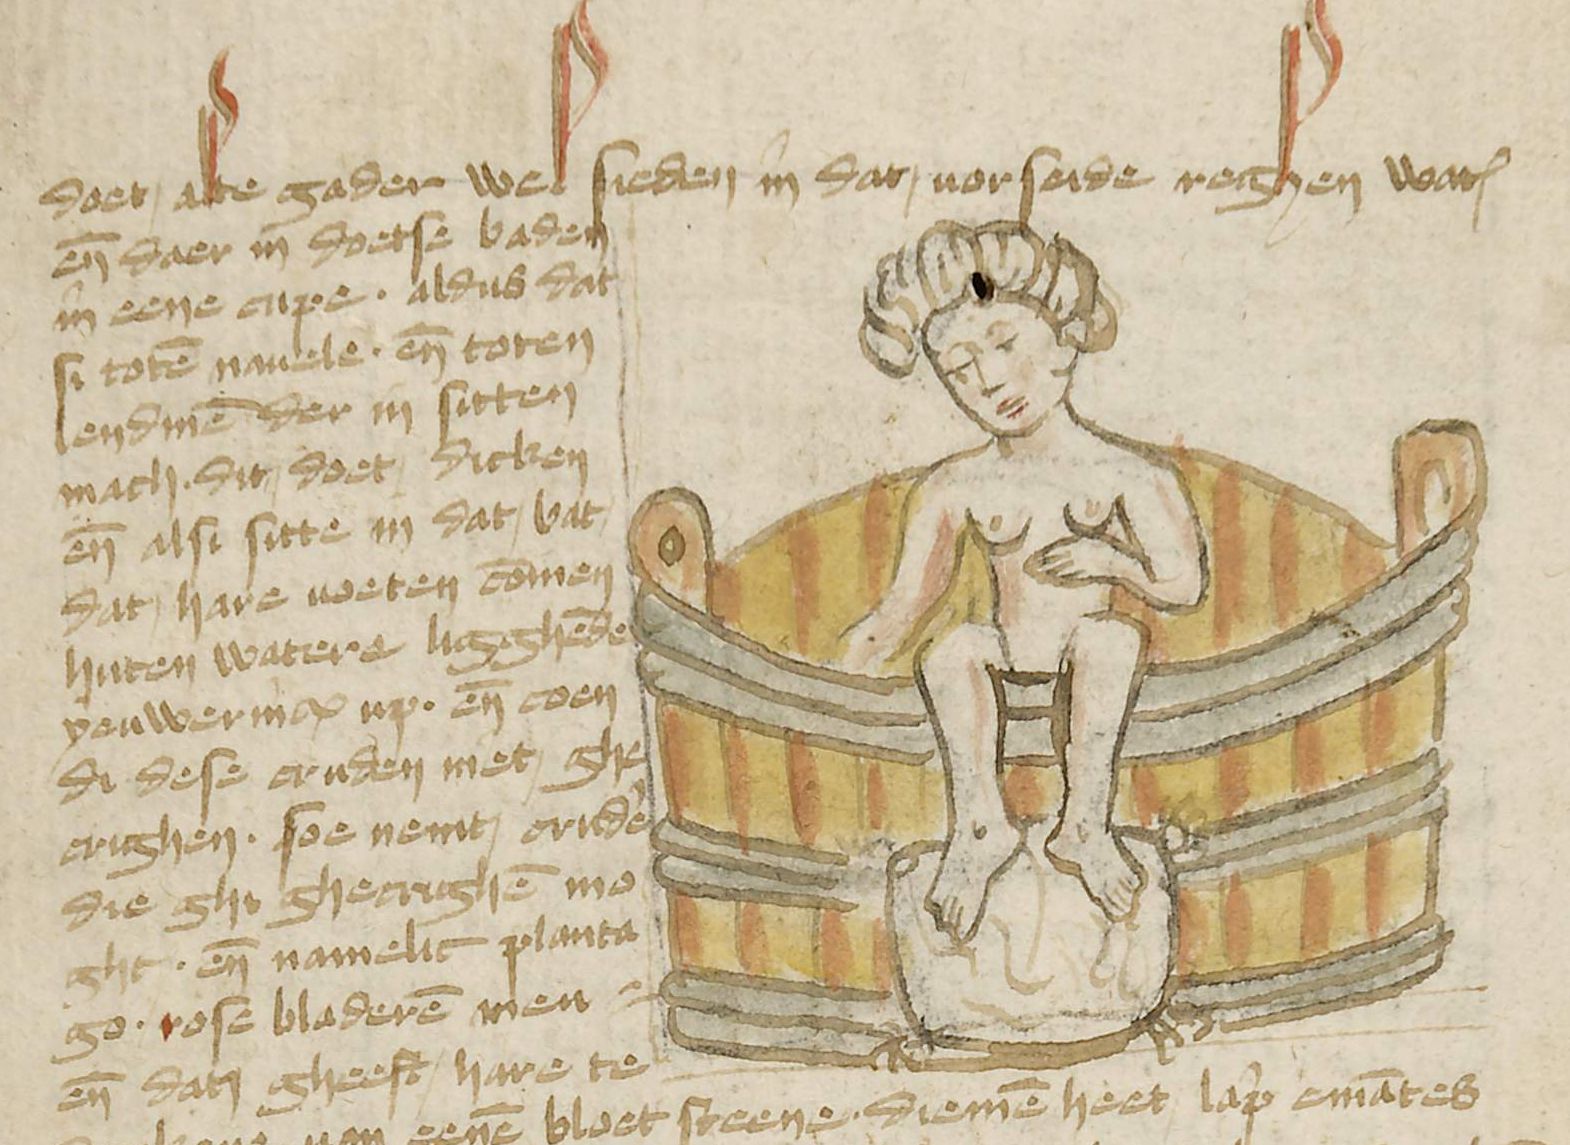 doet alte gader wel sieden in dat uorseide reghen wat
en̄ daer in doetse baden
in eene cupe. aldus dat
si totē nauele. en̄ toten
lendinē der in sitten
mach. dit doet dicken
en̄ alsi sitte in dat bat
dat hare uoeten cōmen
huten watere ligghēde
up. en̄ coen
di dese cruden niet ghe
crighen. soe nemt crudē
die ghi ghecrighē mo
ght. en̄ namelic planta
go. rose bladerē men
en̄ dati gheeft hare te
uan eenē bloet steene. diemē heet lap ematēs